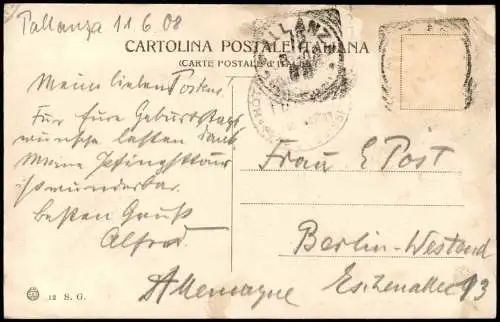 Pallanza 11.6.08
CARTOLINA POSTALE ITALIANA
(CARTE POSTALE d'ITALIE)
Meine lieben Posten!
Für Eure Geburtstags
wünsche besten Dank.
Meine Pfingsttour
ist wunderbar.
Besten Gruß
Alfred.
Frau E Post
Berlin-Westend
Eschenallee 13
Allemagne
12 S. G.